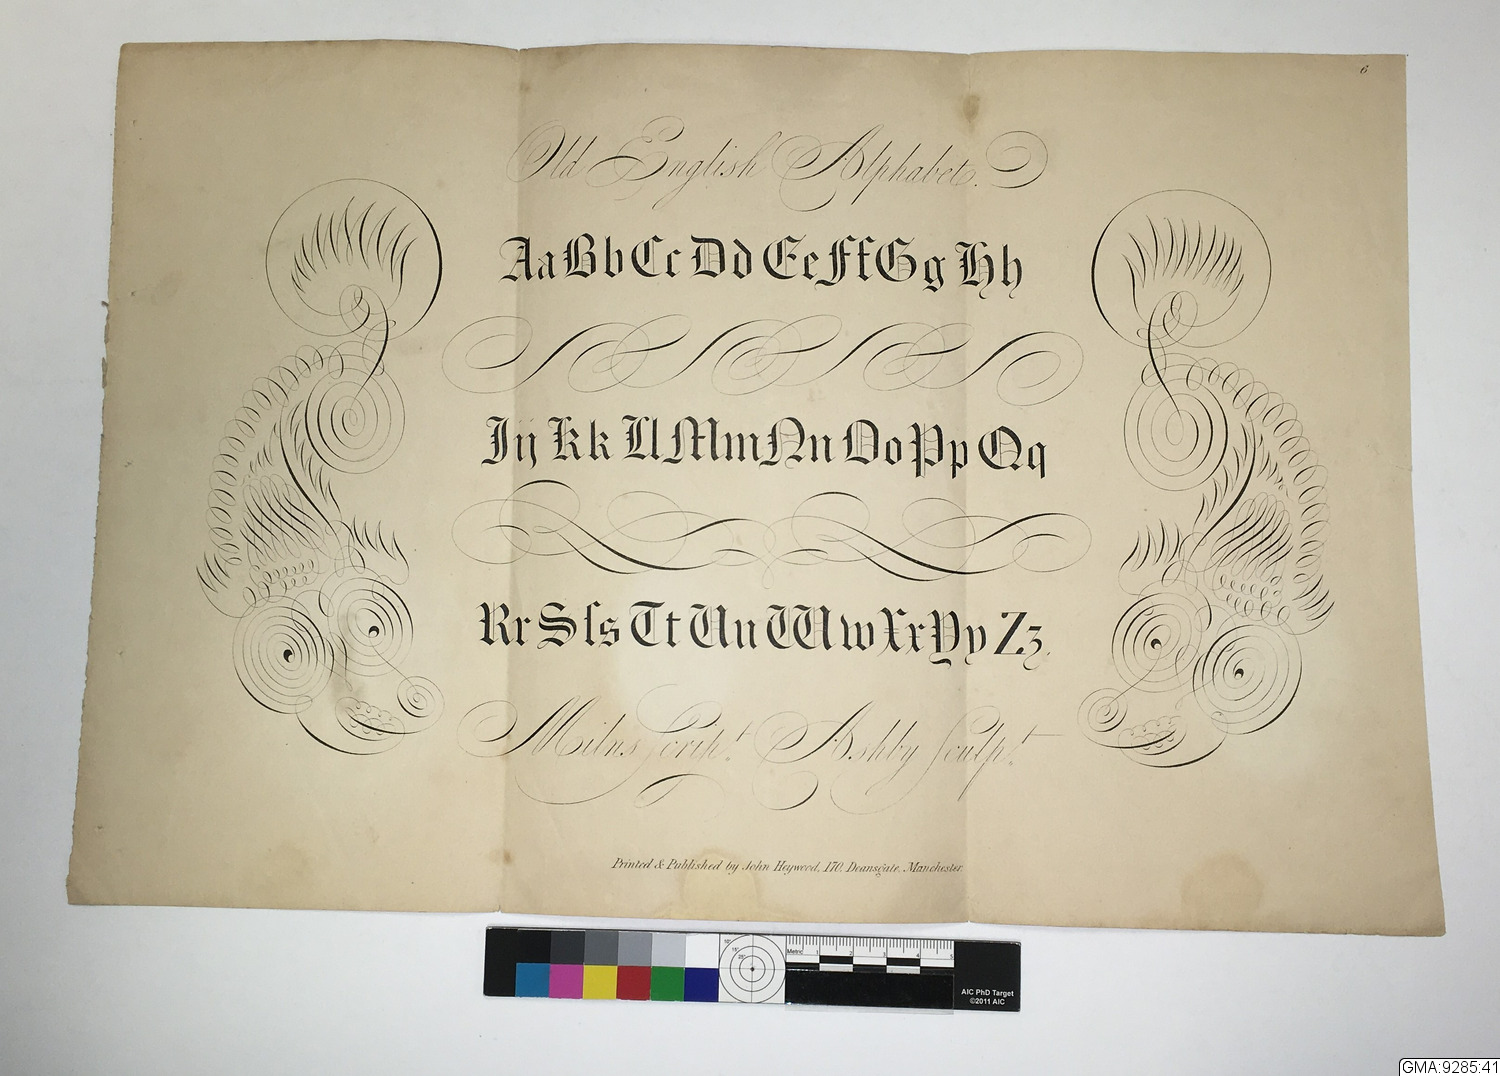 6
Old English Alphabet.
Aa Bb Cc Dd Ee Ff Gg Hh
Iij Kk Ll Mm Nn Oo Pp Qq
Rr Sſs Tt Uu Ww Xx Yy Zz.
Milns Scrip.t Ashby Sculp.t
Printed & Published by John Heywood, 170, Deansgate, Manchester.
10° 15° 25°
Metric 1 2 3 4 5
AIC PhD Target
©2011 AIC
GMA:9285:41